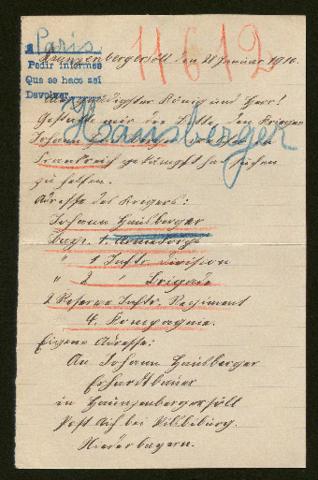 Paris
11612
Pedir informes
Que se hace así
Devolver
Haunzenbergersöll den 21 Januar 1916.
Allergnädigster König und Herr!
Gestatte mir die Bitte, den Krieger
Hansberger
Johann
Frankreich gekämpft
zu helfen.
Adresse des Kriegers:
Johann Hausberger
Bayr. 1. Armeekorps
" 1 Inftr. Division
" 2 " Brigade
2 Reserve Inftr. Regiment
4. Kompagnie.
Eigene Adresse:
An Johann Hausberger
in Haunzenbergersöll
Post Aich bei Vilsbiburg.
Niederbayern.